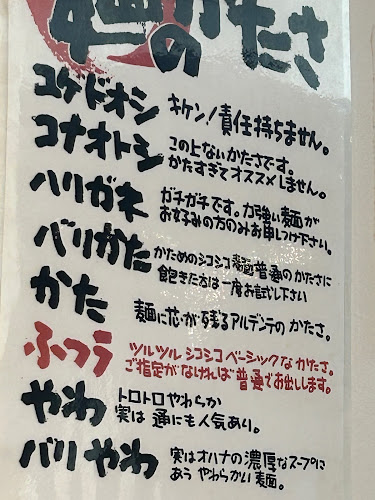 麺のかたさ
ユゲドオシ
キケン!責任持ちません。
コナオトシ
この上ないかたさです。
かたすぎてオススメしません。
ハリガネ
ガチガチです。力強い麺が
お好みの方のみお申しつけ下さい。
バリかた
かためのシコシコ麺普通のかたさに
飽きた方は一度お試し下さい
かた
麺に芯が残るアルデンテのかたさ。
ふつう
ツルツルシコシコベーシックなかたさ。
ご指定がなければ普通でお出しします。
やわ
トロトロやわらか
実は通にも人気あり。
バリやわ
実はオハナの濃厚なスープに
あうやわらかい麺。